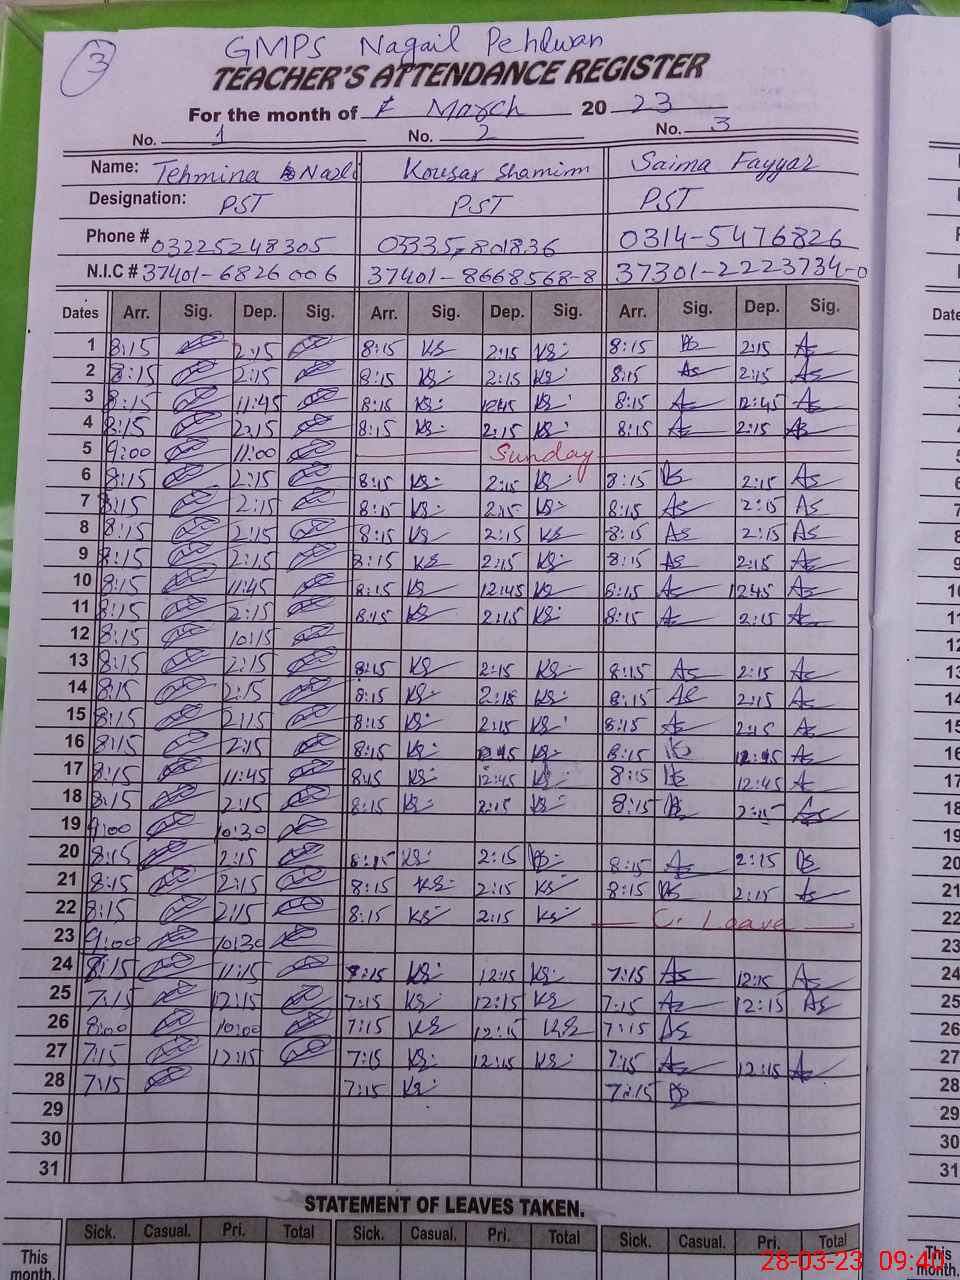 3
GMPS Nagail Pehlwan
TEACHER'S ATTENDANCE REGISTER
For the month of March 20 23
No. 1 No. 2 No. 3
Name: Tehmina Nazli Kousar Shamim Saima Fayyaz
Designation: PST PST PST
Phone # 03225248305 03335,801836 0314-5476826
N.I.C # 37401-6826006 37401-8668568-8 37301-2223734-0
Dates Arr. Sig. Dep. Sig. Arr. Sig. Dep. Sig. Arr. Sig. Dep. Sig.
1 8:15 2:15 8:15 KS 2:15 KS 8:15 2:15 As
2 8:15 2:15 8:15 KS 2:15 KS 8:15 As 2:15 As
3 8:15 11:45 8:15 KS KS 8:15 As 12:45 As
4 8:15 2:15 8:15 KS 2:15 KS 8:15 As 2:15 As
5 9:00 11:00 Sunday
6 8:15 2:15 8:15 KS 2:15 KS 8:15 As 2:15 As
7 8:15 2:15 8:15 KS 2:15 KS 8:15 As 2:15 As
8 8:15 2:15 8:15 KS 2:15 KS 8:15 As 2:15 As
9 8:15 2:15 8:15 KS 2:15 KS 8:15 As 2:15 As
10 8:15 11:45 8:15 KS 12:45 KS 8:15 As 12:45 As
11 8:15 2:15 8:15 KS 2:15 KS 8:15 As 2:15 As
12 8:15 10:15
13 8:15 2:15 8:15 KS 2:15 KS 8:15 As 2:15 As
14 8:15 2:15 8:15 KS 2:18 KS 8:15 As 2:15 As
15 8:15 2:15 8:15 KS 2:15 KS 8:15 As 2:15 As
16 8:15 2:15 8:15 KS KS 8:15 12:45 As
17 8:15 11:45 8:15 KS 12:45 KS 8:15 As 12:45 As
18 8:15 2:15 8:15 KS 2:15 KS 8:15 As 2:15 As
19 9:00 10:30
20 8:15 2:15 8:15 KS 2:15 8:15 As 2:15 As
21 8:15 2:15 8:15 KS 2:15 KS 8:15 As 2:15 As
22 8:15 2:15 8:15 KS 2:15 KS C. Leave
23 9:00 10:30
24 8:15 11:15 7:15 KS 12:15 KS 7:15 As 12:15 As
25 7:15 12:15 7:15 KS 12:15 KS 7:15 As 12:15 As
26 8:00 10:00 7:15 KS 12:15 KS 7:15 As
27 7:15 12:15 7:15 KS 12:15 KS 7:15 As 12:15 As
28 7:15 7:15 KS 7:15 As
29
30
31
STATEMENT OF LEAVES TAKEN.
Sick. Casual. Pri. Total Sick. Casual. Pri. Total Sick. Casual. Pri. Total
This month.
28-03-23 09:40